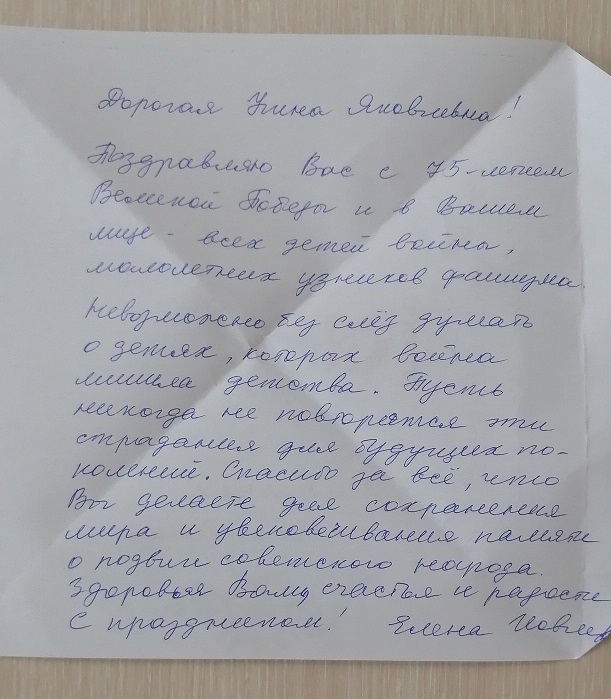 Дорогая Нина Яковлевна!
Поздравляю Вас с 75-летием
Великой Победы и в Вашем
лице - всех детей войны,
малолетних узников фашизма.
Невозможно без слёз думать
о детях, которых война
лишила детства. Пусть
никогда не повторятся эти
страдания для будущих по-
колений. Спасибо за всё, что
Вы делаете для сохранения
мира и увековечивания памяти
о подвиги советского народа.
Здоровья Вам, счастья и радости
С праздником! Елена